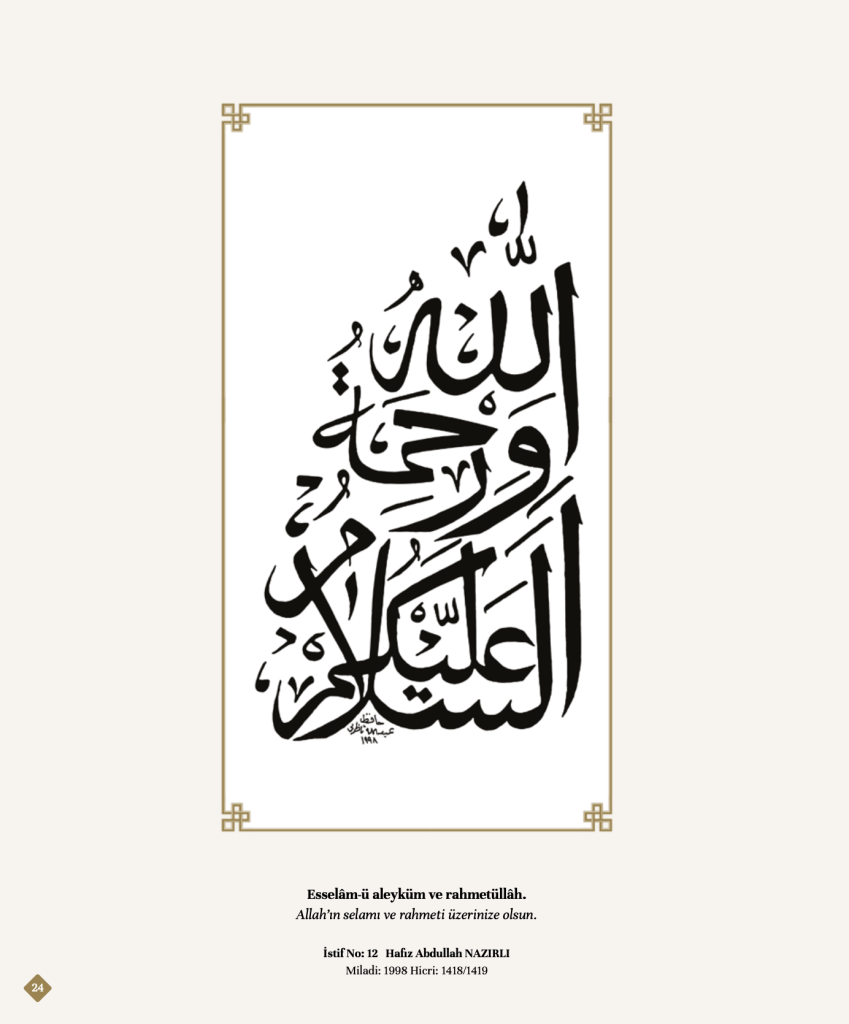 السَّلَامُ عَلَيْكُمْ
وَرَحْمَةُ
اللّٰهِ
حافظ
عبدالله ناظرلى
١٩٩٨
Esselâm-ü aleyküm ve rahmetüllâh.
Allah’ın selamı ve rahmeti üzerinize olsun.
İstif No: 12 Hafız Abdullah NAZIRLI
Miladi: 1998 Hicri: 1418/1419
24